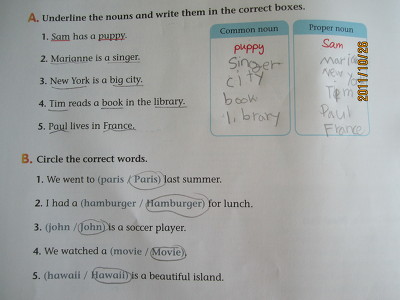 A. Underline the nouns and write them in the correct boxes.
1. Sam has a puppy.
2. Marianne is a singer.
3. New York is a big city.
4. Tim reads a book in the library.
5. Paul lives in France.
Common noun
puppy
Singer
city
book
library
Proper noun
Sam
Tim
Paul
France
2011/10/26
B. Circle the correct words.
1. We went to (paris / Paris) last summer.
2. I had a (hamburger / Hamburger) for lunch.
3. (john / John) is a soccer player.
4. We watched a (movie / Movie).
5. (hawaii / Hawaii) is a beautiful island.